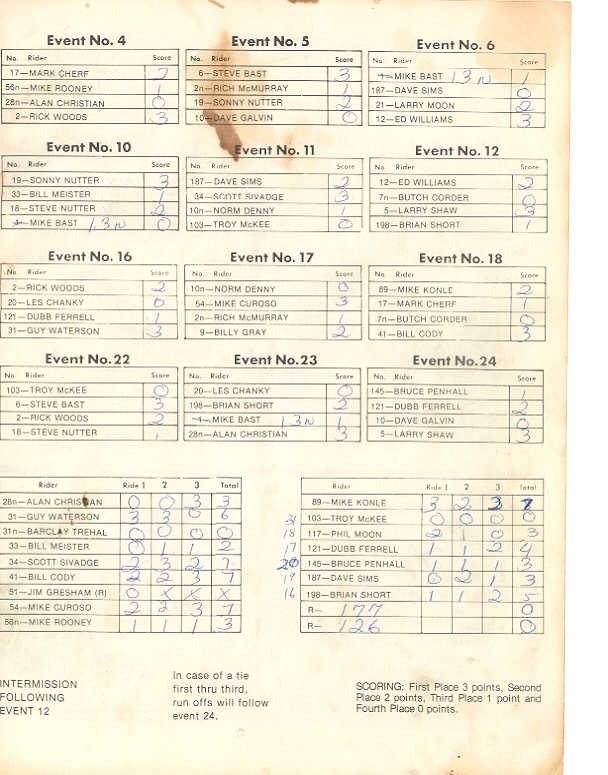 Event No. 4 Event No. 5 Event No. 6
No. Rider Score No. Rider Score No. Rider Score
17—MARK CHERF 2 6—STEVE BAST 3 MIKE BAST 13N 1
56n—MIKE ROONEY 1 2n—RICH McMURRAY 1 187—DAVE SIMS 0
28n—ALAN CHRISTIAN 0 19—SONNY NUTTER 2 21—LARRY MOON 2
2—RICK WOODS 3 10—DAVE GALVIN 0 12—ED WILLIAMS 3
Event No. 10 Event No. 11 Event No. 12
No. Rider Score No. Rider Score No. Rider Score
19—SONNY NUTTER 3 187—DAVE SIMS 2 12—ED WILLIAMS 2
33—BILL MEISTER 1 34—SCOTT SIVADGE 3 7n—BUTCH CORDER 0
18—STEVE NUTTER 2 10n—NORM DENNY 1 5—LARRY SHAW 3
MIKE BAST 13N 0 103—TROY McKEE 0 198—BRIAN SHORT 1
Event No. 16 Event No. 17 Event No. 18
No. Rider Score No. Rider Score No. Rider Score
2—RICK WOODS 2 10n—NORM DENNY 0 89—MIKE KONLE 2
20—LES CHANKY 0 54—MIKE CUROSO 3 17—MARK CHERF 1
121—DUBB FERRELL 1 2n—RICH McMURRAY 1 7n—BUTCH CORDER 0
31—GUY WATERSON 3 9—BILLY GRAY 2 41—BILL CODY 3
Event No. 22 Event No. 23 Event No. 24
No. Rider Score No. Rider Score No. Rider Score
103—TROY McKEE 0 20—LES CHANKY 0 145—BRUCE PENHALL 1
6—STEVE BAST 3 198—BRIAN SHORT 2 121—DUBB FERRELL 2
2—RICK WOODS 2 MIKE BAST 13N 1 10—DAVE GALVIN 0
18—STEVE NUTTER 1 28n—ALAN CHRISTIAN 3 5—LARRY SHAW 3
Rider Ride 1 2 3 Total Rider Ride 1 2 3 Total
28n—ALAN CHRISTIAN 0 0 3 3 89—MIKE KONLE 3 2 3
31—GUY WATERSON 3 3 0 6 103—TROY McKEE 0 0 0 0
31n—BARCLAY TREHAL 0 0 0 0 18 117—PHIL MOON 2 1 0 3
33—BILL MEISTER 0 1 1 2 17 121—DUBB FERRELL 1 1 2 4
34—SCOTT SIVADGE 2 3 2 7 20 145—BRUCE PENHALL 1 1 1 3
41—BILL CODY 2 2 3 7 19 187—DAVE SIMS 0 2 1 3
51—JIM GRESHAM (R) 0 X X X 16 198—BRIAN SHORT 1 1 2 5
54—MIKE CUROSO 2 2 3 7 R— 177 0
56n—MIKE ROONEY 1 1 1 3 R— 126 0
INTERMISSION
FOLLOWING
EVENT 12
In case of a tie
first thru third,
run offs will follow
event 24.
SCORING: First Place 3 points, Second
Place 2 points, Third Place 1 point and
Fourth Place 0 points.